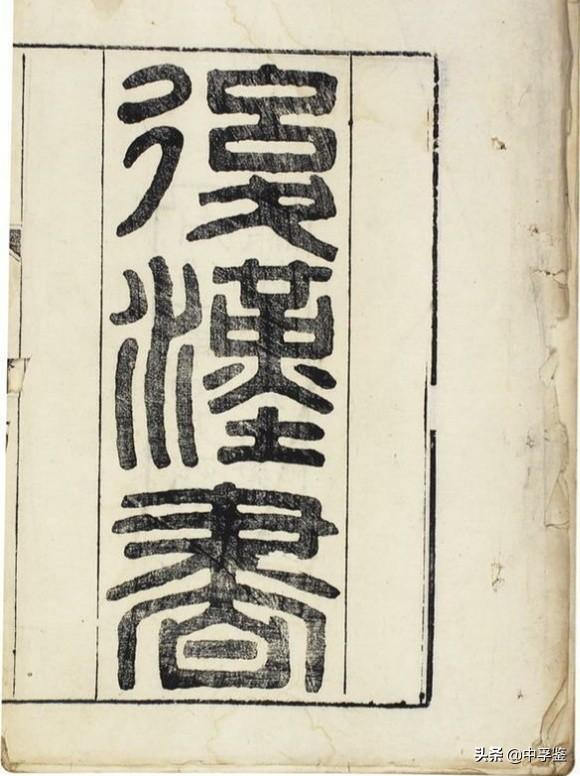 後漢書
头条 @中孚鉴